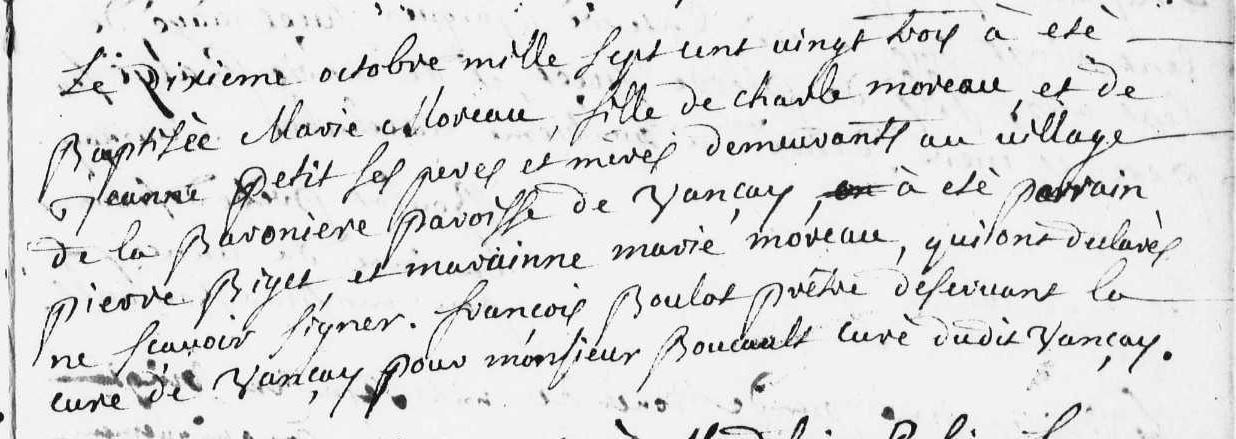 Le dixieme octobre mille sept cent vingt trois à etè
Baptisèe Marie Moreau, fille de charle moreau, et de
Jeanne petit ses peres et meres demeurants au village
de la Baroniere paroisse de Vançay, à etè parrain
pierre Biget, et marainne marie moreau, qui ont declarès
ne scavoir signer. françois Boulot prètre deservant la
cure de Vançay pour monsieur Boucault curè dudit Vançay.